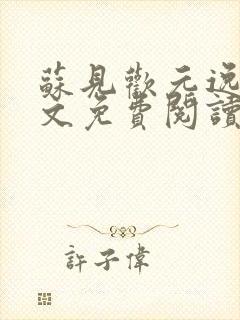 蘇見歡元逸
文免費閱讀
許子偉